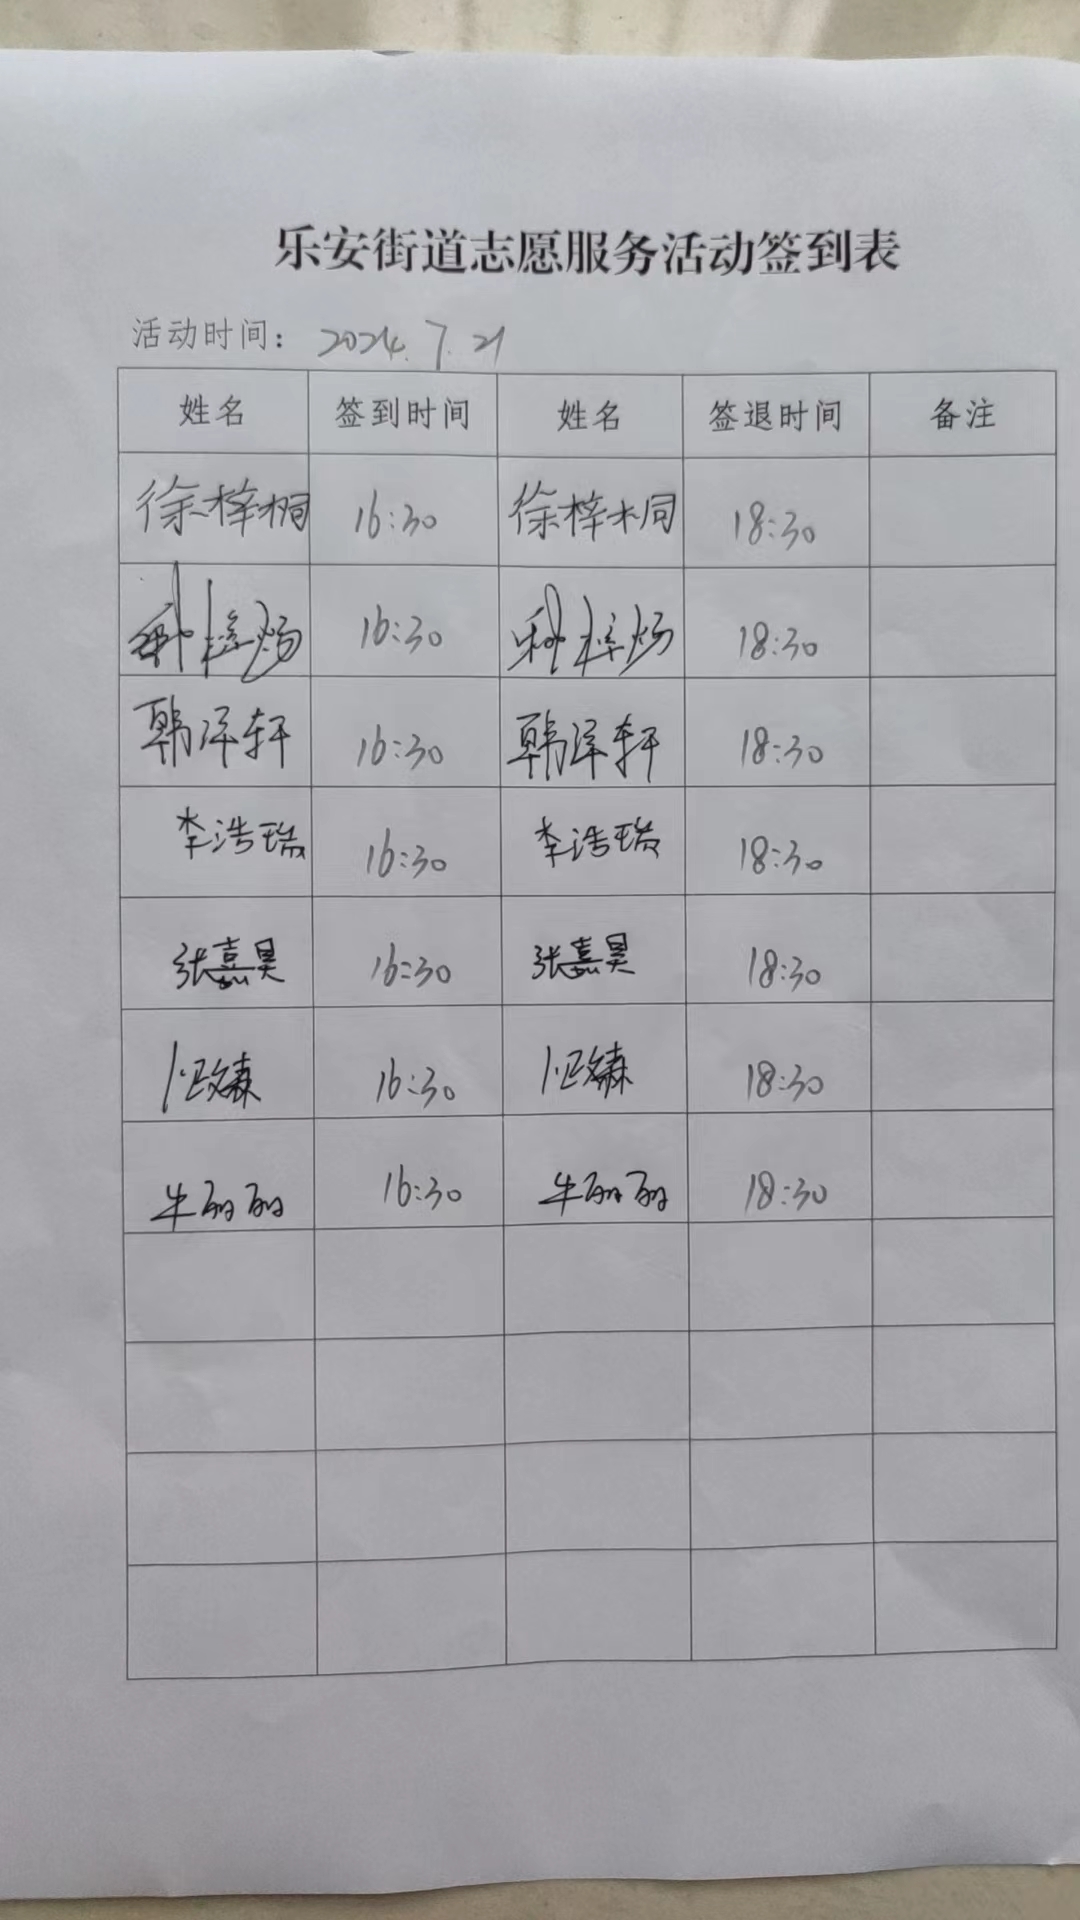 乐安街道志愿服务活动签到表
活动时间： 2024.7.21
姓名 签到时间 姓名 签退时间 备注
徐梓桐 16:30 徐梓桐 18:30
16:30 18:30
韩泽轩 16:30 韩泽轩 18:30
李浩瑞 16:30 李浩瑞 18:30
张嘉昊 16:30 张嘉昊 18:30
16:30 18:30
牛丽丽 16:30 牛丽丽 18:30